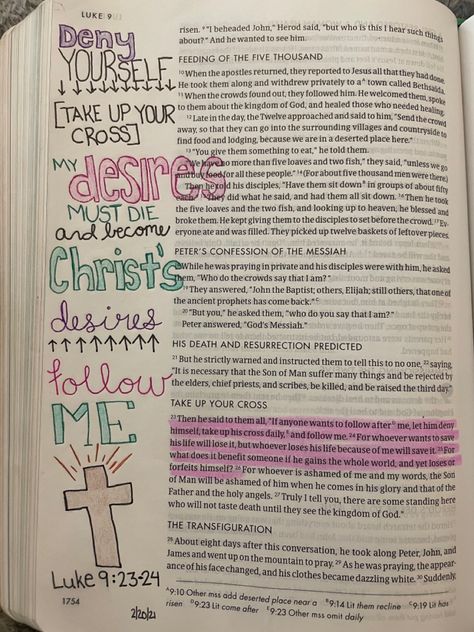 LUKE 9
Deny
YOURSELF
[TAKE UP YOUR
CROSS]
MY
desires
MUST DIE
and become
Christ's
desires
follow
ME
Luke 9:23-24
1754
2/20/21
risen. ⁹ "I beheaded John," Herod said, "but who is this I hear such things
about?" And he wanted to see him.
FEEDING OF THE FIVE THOUSAND
¹⁰ When the apostles returned, they reported to Jesus all that they had done.
He took them along and withdrew privately to a ᴬ town called Bethsaida.
¹¹ When the crowds found out, they followed him. He welcomed them, spoke
to them about the kingdom of God, and healed those who needed healing.
¹² Late in the day, the Twelve approached and said to him, "Send the crowd
away, so that they can go into the surrounding villages and countryside to
find food and lodging, because we are in a deserted place here."
¹³ "You give them something to eat," he told them.
"We have no more than five loaves and two fish," they said, "unless we go
and buy food for all these people." ¹⁴ (For about five thousand men were there)
Then he told his disciples, "Have them sit down ᴮ in groups of about fifty
each." ¹⁵ They did what he said, and had them all sit down. ¹⁶ Then he took
the five loaves and the two fish, and looking up to heaven, he blessed and
broke them. He kept giving them to the disciples to set before the crowd. ¹⁷ Ev-
eryone ate and was filled. They picked up twelve baskets of leftover pieces.
PETER'S CONFESSION OF THE MESSIAH
¹⁸ While he was praying in private and his disciples were with him, he asked
them, "Who do the crowds say that I am?"
¹⁹ They answered, "John the Baptist; others, Elijah; still others, that one of
the ancient prophets has come back." ᶜ
²⁰ "But you," he asked them, "who do you say that I am?"
Peter answered, "God's Messiah."
HIS DEATH AND RESURRECTION PREDICTED
²¹ But he strictly warned and instructed them to tell this to no one, ²² saying,
"It is necessary that the Son of Man suffer many things and be rejected by
the elders, chief priests, and scribes, be killed, and be raised the third day."
TAKE UP YOUR CROSS
²³ Then he said to them all, "If anyone wants to follow after ᴰ me, let him deny
himself, take up his cross daily, ᴱ and follow me. ²⁴ For whoever wants to save
his life will lose it, but whoever loses his life because of me will save it. ²⁵ For
what does it benefit someone if he gains the whole world, and yet loses or
forfeits himself? ²⁶ For whoever is ashamed of me and my words, the Son
of Man will be ashamed of him when he comes in his glory and that of the
Father and the holy angels. ²⁷ Truly I tell you, there are some standing here
who will not taste death until they see the kingdom of God."
THE TRANSFIGURATION
²⁸ About eight days after this conversation, he took along Peter, John, and
James and went up on the mountain to pray. ²⁹ As he was praying, the appear-
ance of his face changed, and his clothes became dazzling white. ³⁰ Suddenly,
ᴬ 9:10 Other mss add deserted place near a ᴮ 9:14 Lit them recline ᶜ 9:19 Lit has
risen ᴰ 9:23 Lit come after ᴱ 9:23 Other mss omit daily